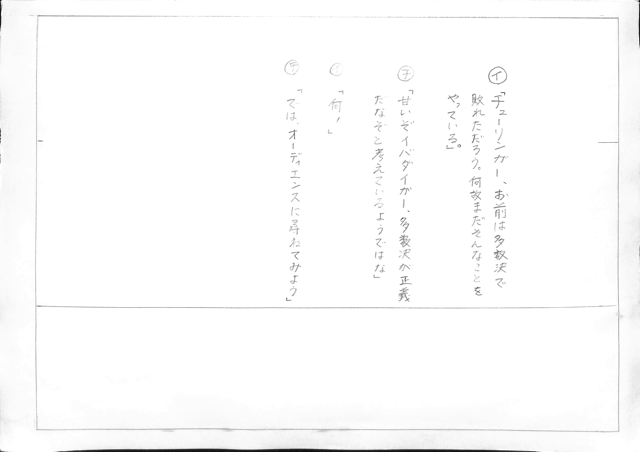 イ
「チューリンガー、お前は多数決で
敗れただろう。何故まだそんなことを
やっている」。
チ
「甘いぞイバダイガー、多数決が正義
だなぞと考えているようではな」
「何！」
チ
「では、オーディエンスに尋ねてみよう」